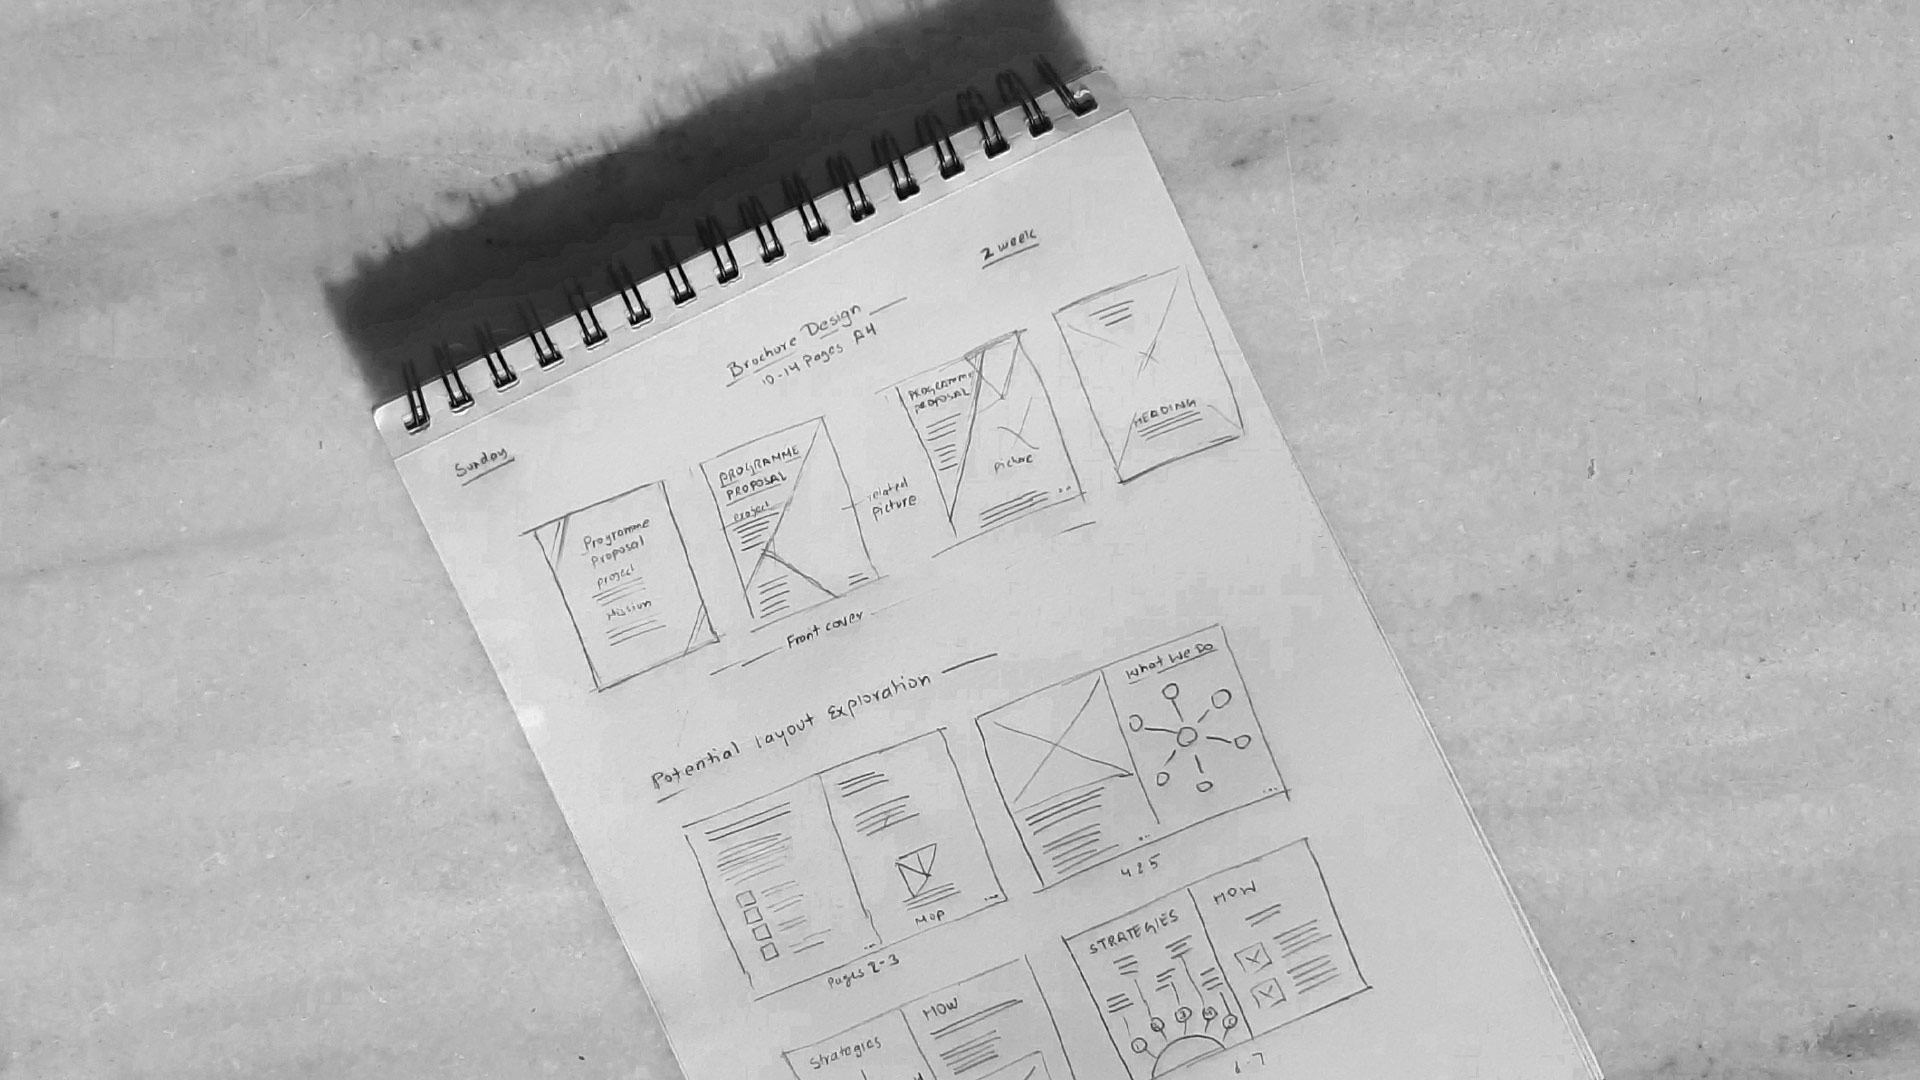 2 week
Brochure Design
10-14 Pages A4
Sunday
Programme
Proposal
project
Mission
PROGRAMME
PROPOSAL
project
related
picture
PROGRAMME
PROPOSAL
picture
HEADING
Front cover
Potential layout Exploration
MAP
Pages 2-3
What We Do
4 & 5
Strategies
HOW
STRATEGIES
HOW
6-7